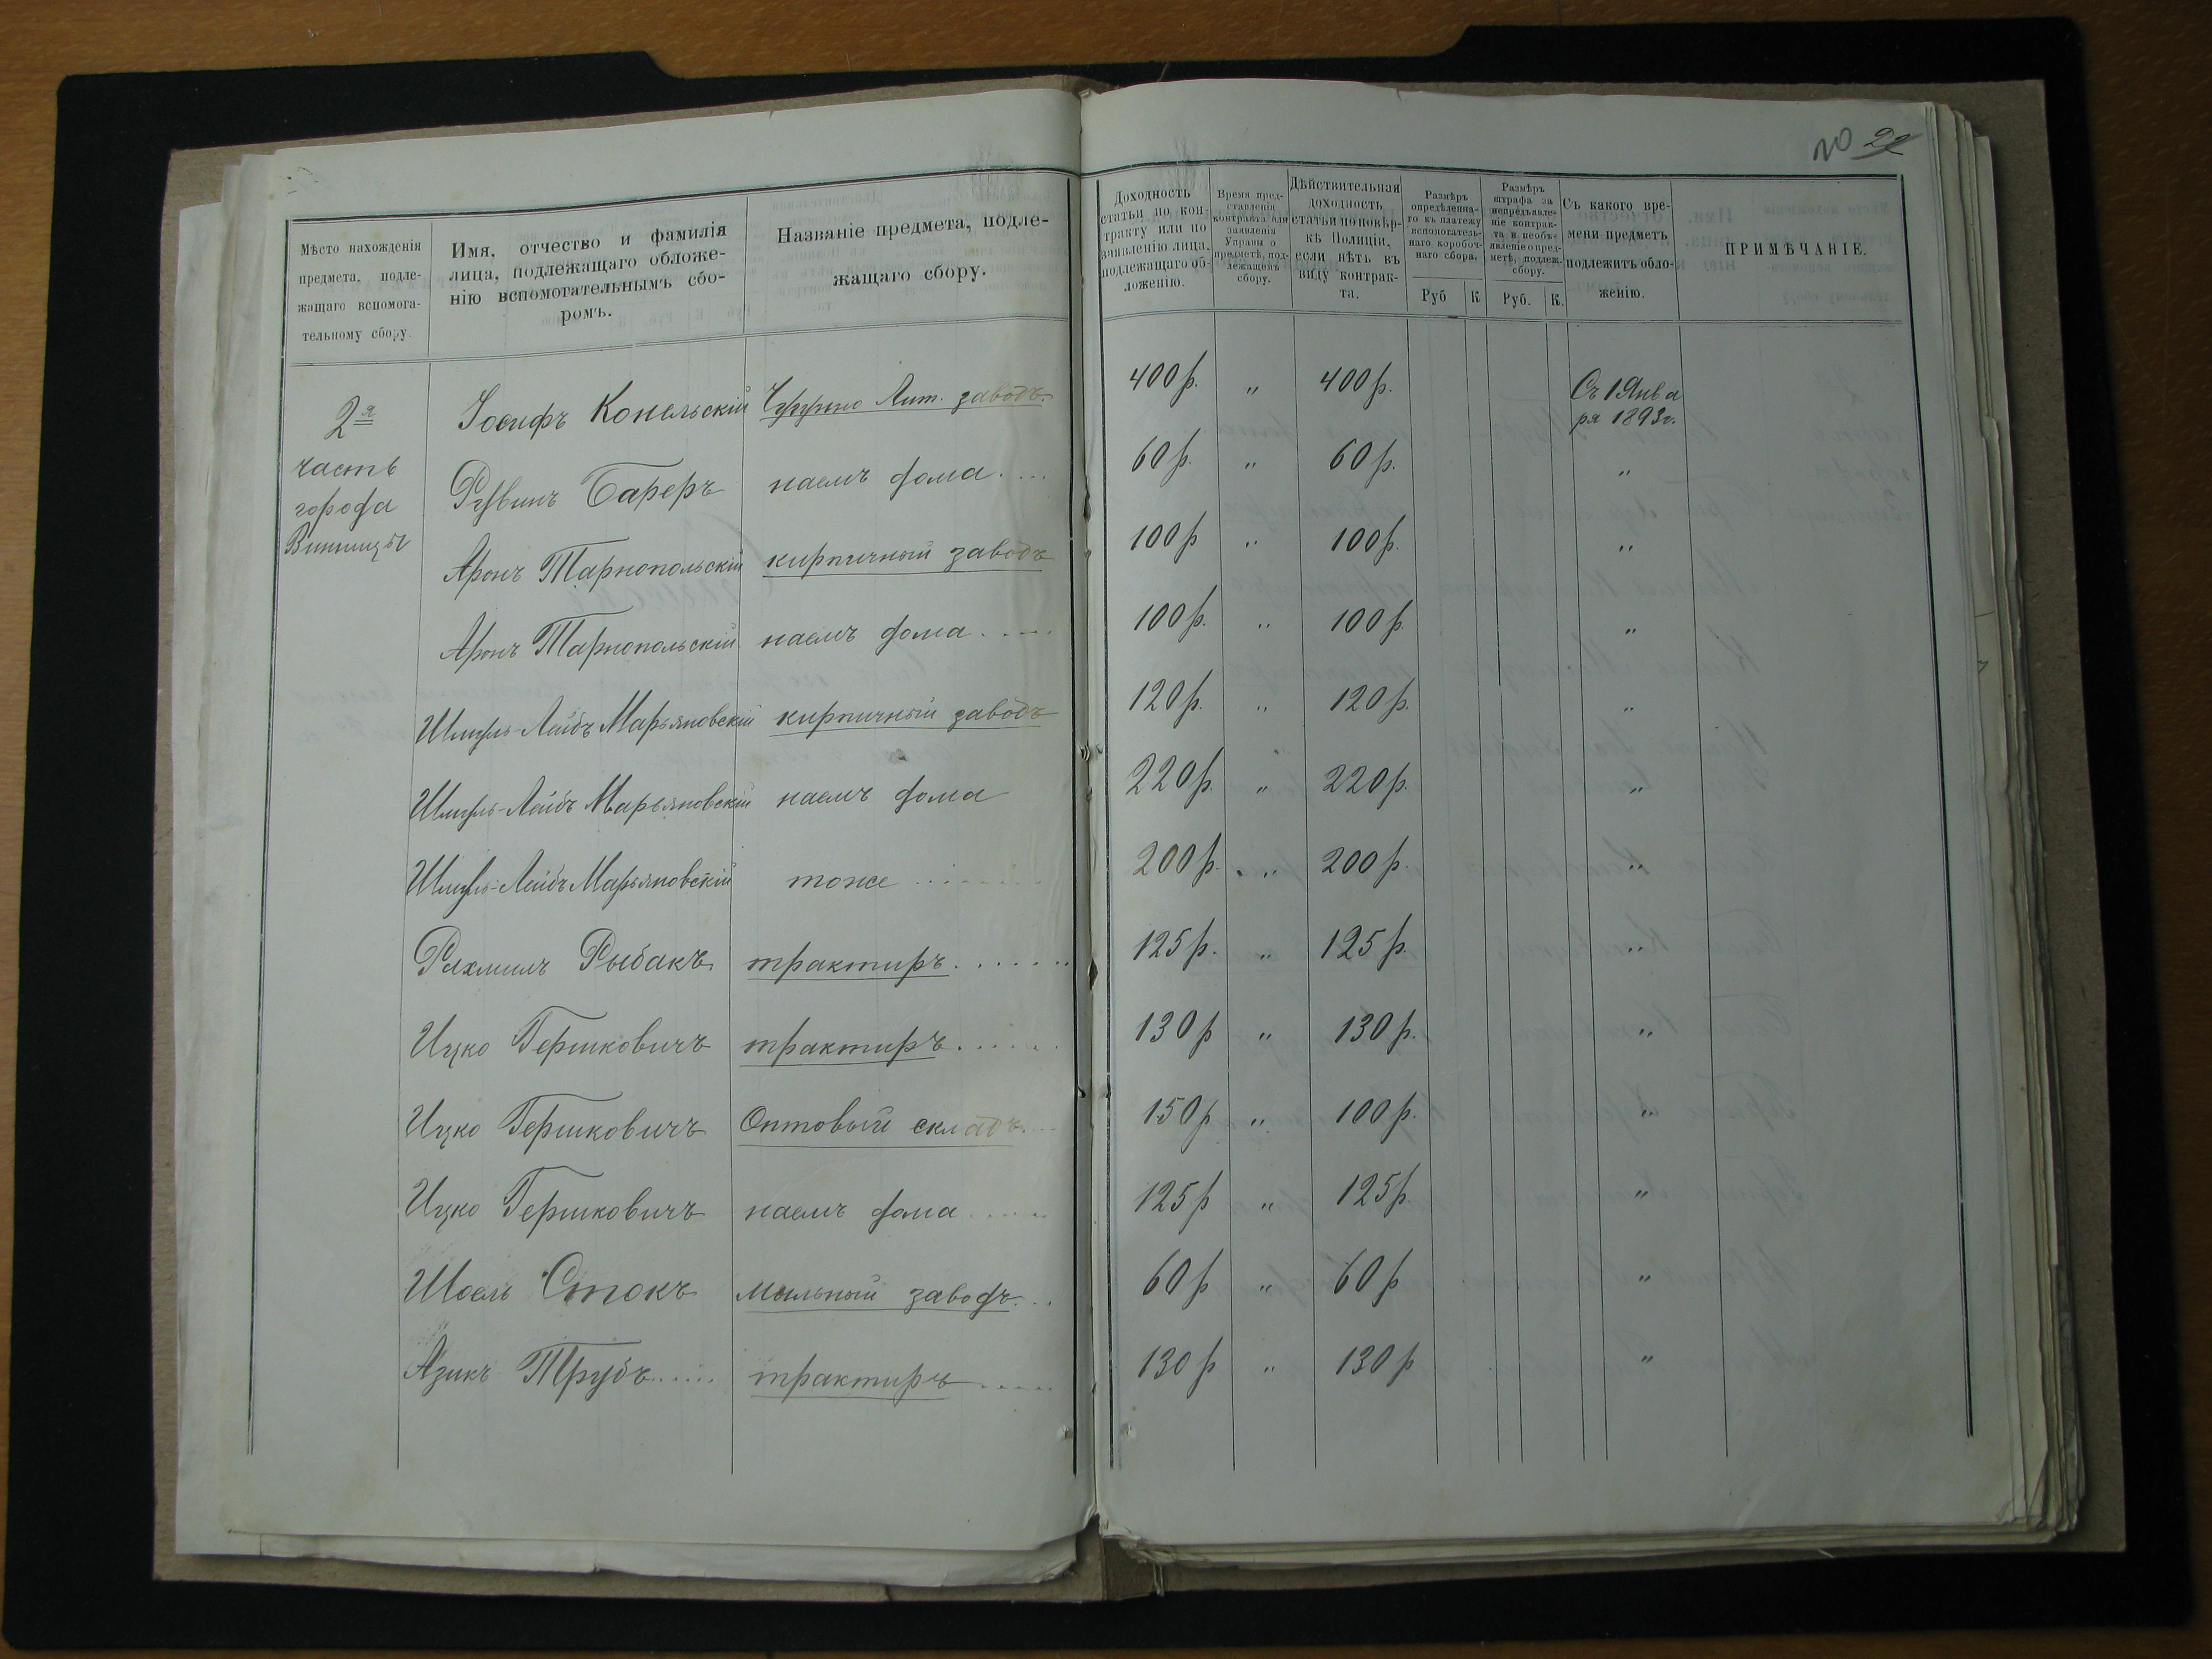 20 22
Мѣсто нахожденія
предмета, подле-
жащаго вспомога-
тельному сбору.
Имя, отчество и фамилія
лица, подлежащаго обложе-
нію вспомогательнымъ сбо-
ромъ.
Названіе предмета, подле-
жащаго сбору.
Доходность
статьи по кон-
тракту или по
заявленію лица,
подлежащаго об-
ложенію.
Время пред-
ставленія
контракта или
заявленія
Управы о
предметѣ, под-
лежащемъ
сбору.
Дѣйствительная
доходность
статьи по повѣр-
кѣ Полиціи,
если нѣтъ въ
виду контрак-
та.
Размѣръ
опредѣленна-
го къ платежу
вспомогатель-
наго коробоч-
наго сбора.
Руб К
Размѣръ
штрафа за
непредъявле-
ніе контрак-
та и необъ-
явленіе о пред-
метѣ, подлеж.
сбору.
Руб. К.
Съ какого вре-
мени предметъ
подлежитъ обло-
женію.
ПРИМѢЧАНІЕ.
2я
часть
города
Винницы
Іосифъ Конельскій Чугунно Лит. заводъ. 400 р. " 400 р. Съ 1 Янва
ря 1893 г.
Рувинъ Бареръ наемъ дома.... 60 р. " 60 р. "
Аронъ Тарнопольскій кирпичный заводъ 100 р " 100 р. "
Аронъ Тарнопольскій наемъ дома..... 100 р. " 100 р. "
Шмуль-Лейбъ Марьяновскій кирпичный заводъ 120 р. " 120 р. "
Шмуль-Лейбъ Марьяновскій наемъ дома 220 р. " 220 р. "
Шмуль-Лейбъ Марьяновскій тоже ....... 200 р. " 200 р. "
Рахмиль Рыбакъ трактиръ....... 125 р. " 125 р. "
Ицко Гершковичъ трактиръ...... 130 р " 130 р. "
Ицко Гершковичъ Оптовый складъ.... 150 р " 100 р. "
Ицко Гершковичъ наемъ дома..... 125 р " 125 р "
Шоель Стокъ мыльный заводъ... 60 р " 60 р "
Азикъ Трубъ..... трактиръ..... 130 р " 130 р "